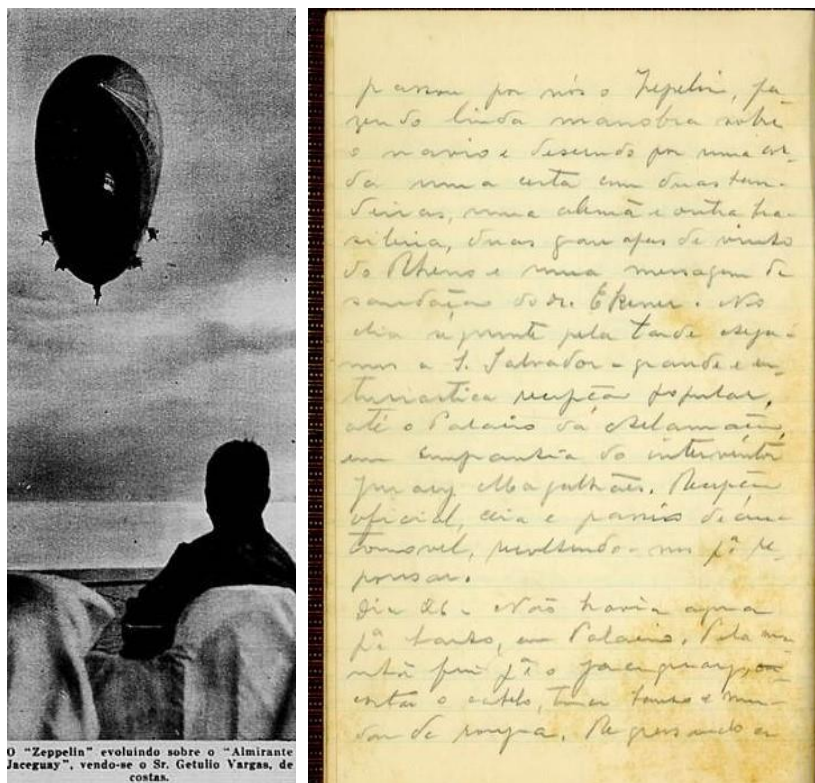 O "Zeppelin" evoluindo sobre o "Almirante
Jaceguay", vendo-se o Sr. Getulio Vargas, de
costas.
passou por nós o Zepelin, fa-
zendo linda manobra sobre
o navio e descendo por uma cor-
da uma cesta com duas ban-
deiras, uma alemã e outra bra-
sileira, duas garrafas de vinho
do Rheno e uma mensagem de
saudação do dr. Ekener. No
dia seguinte pela tarde chega-
mos a S. Salvador - grande e en-
tusiastica recepção popular,
até o Palacio da Aclamação,
em companhia do interventor
Juracy Magalhães. Recepção
oficial, ceia e passeio de au-
tomovel, recolhendo-nos pª re-
pousar.
Dia 26 - Não havia agua
pª banho, em Palacio. Pela ma-
nhã fui pª o Jaceguay,
cortar o cabelo, tomar banho e mu-
dar de roupa. Regressando